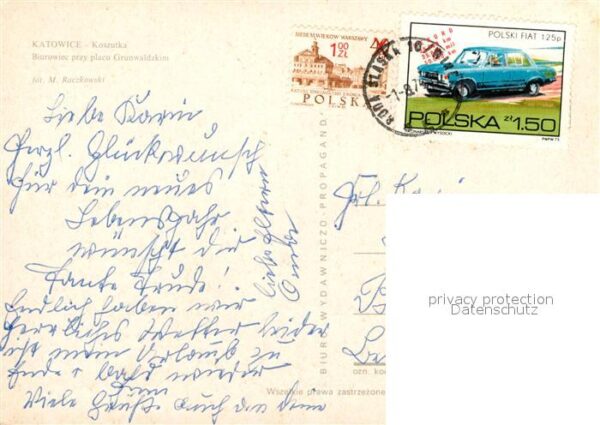 KATOWICE - Koszutka
Biurowiec przy placu Grunwaldzkim
fot. M. Raczkowski
SIEDEM WIEKÓW WARSZAWY
1,00 ZŁ
POLSKA
POLSKI FIAT 125p
POLSKA zł 1.50
PWPW 73
RUDA ŚLĄSKA 10
Liebe Karin
Herzl. Glückwunsch
für dein neues
Lebensjahr
wünscht dir
Tante Trude!
Endlich haben wir
herrliches Wetter leider
ist mein Urlaub zu
Ende + bald wieder
Viele Grüße auch an deine
liebe Eltern
BIURO WYDAWNICZO-PROPAGAND
Frl. Ka
Wszelkie prawa zastrzeżone
ozn. ko
privacy protection
Datenschutz